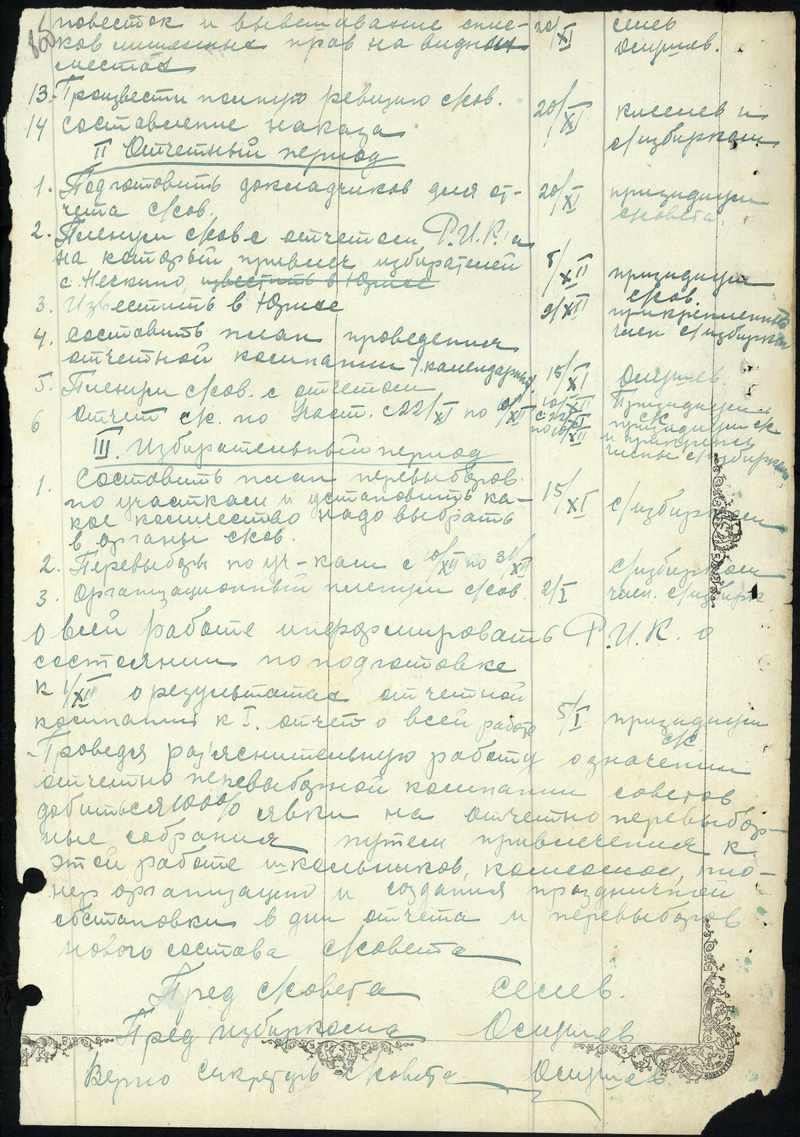 повесток и вывешивание спис- 20/XI
ков лишенных прав на видных
местах
13. Произвести полную ревизию с/сов. 20/XI
14 Составление наказа с/избирком
II Отчетный период
1. Подготовить докладчиков для от- 20/XI президиум
чета с/сов. с/совета.
2. Пленум с/сов с отчетом Р.И.К.'а
на который привлеч избирателей 8/XII президиум
с Нескино, известить в Юрмое с/сов.
3. Известить в Юрмое 9/XII прикрепленный
член с/избирком
4. Составить план проведения
отчетной компании /календарный/ 15/XI
5. Пленум с/сов. с отчетом президиум
6 Отчет с/с. по Участ. с 22/XI по президиум с/с
и прикрепл.
члены с/избирком
III. Избирательный период
1. Составить план перевыборов
по участкам и установить ка- 15/XI с/избирком
кое количество надо выбрать
в органы с/сов.
2. Перевыборы по уч-кам с 10/XII по 30/XII с/избирком
3. Организационный пленум с/сов. 2/I член. с/избирк
О всей работе информировать Р.И.К. о
состоянии по подготовке
к 1/XII о результатах отчетной
компании к I. отчет о всей работе 5/I президиум
с/с
Проведя раз'яснительную работу о значении
отчетно перевыборной компании советов
добиться 100% явки на отчетно перевыбор-
ные собрания путем привлечения к
этой работе школьников, комсомол, пио-
нер организацию и создания праздничной
обстановки в дни отчета и перевыборов
нового состава с/совета
Пред с/совета
Пред избиркома
Верно Секретарь с/совета